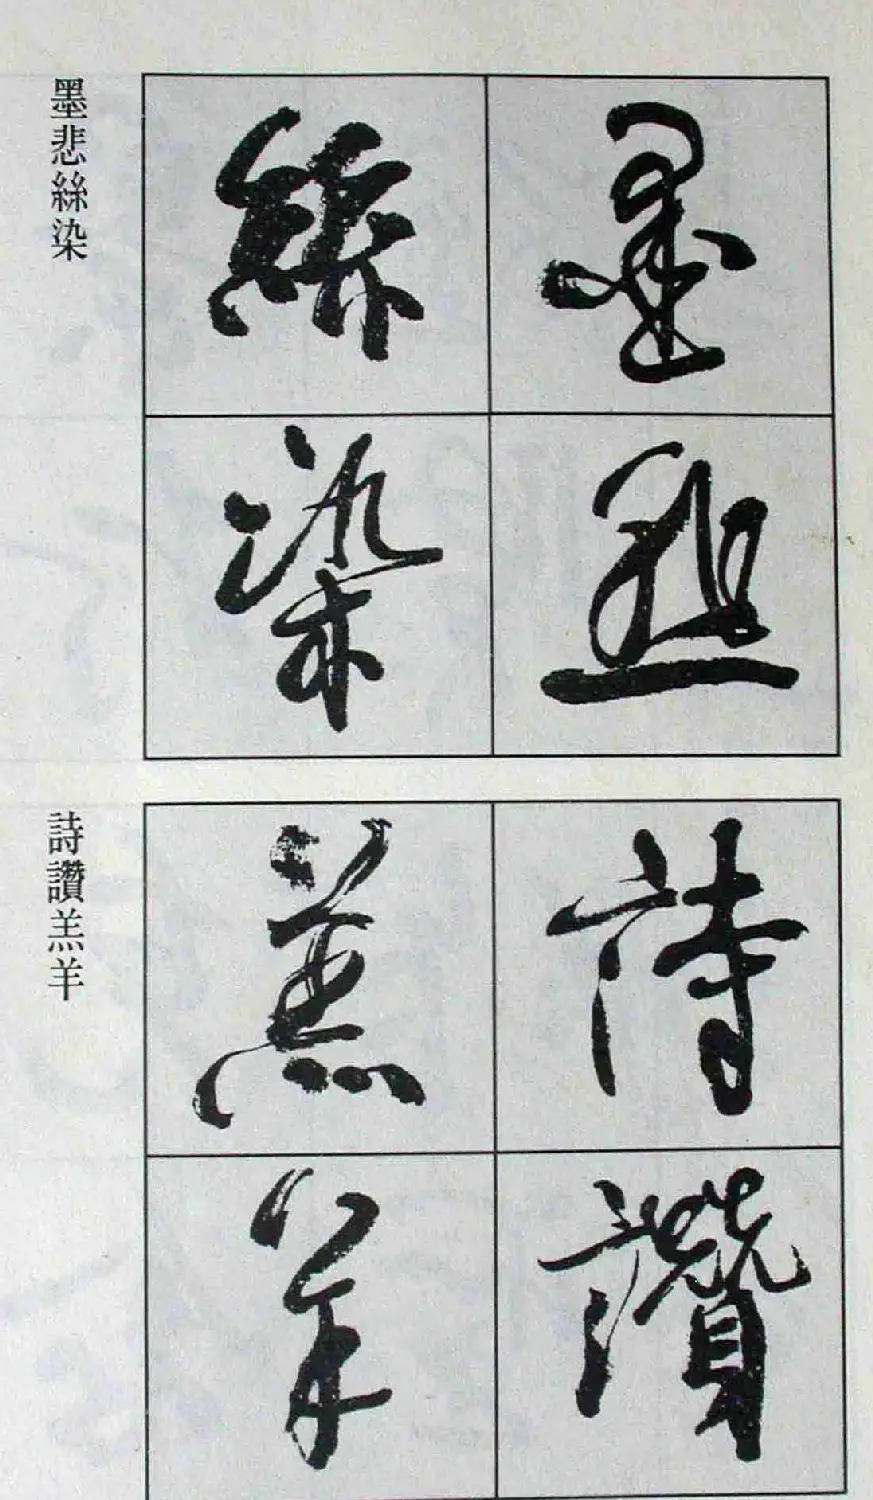 墨悲
絲染
墨悲絲染
詩讚
羔羊
詩讚羔羊